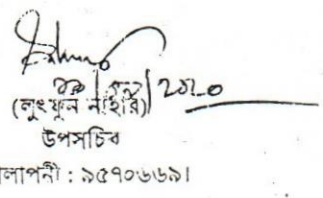 ২০২০
(লুৎফুন নাহার)
উপসচিব
লাপনী : ৯৫৭০৬৬৯।